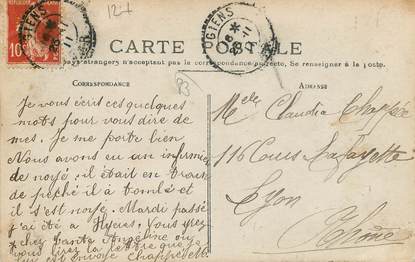 12-4
GIENS
GIENS
10
CARTE POSTALE
pays étrangers n'acceptant pas la correspondance au recto, Se renseigner à la poste.
CORRESPONDANCE
ADRESSE
93
Je vous écris ces quelques
mots pour vous dire de
mes. Je me porte bien
Nous avons eu un infirmier
de noyé; il était en train
de peché il à tombé et
il s'est noyé. Mardi passé
j'ai été a Hyères, vous
chez Tante Angeline ou
vous lirez la lettre que j
envoyé Chappe
Melle Claudia Chappe
116 Cours Lafayette
Lyon
Rhône